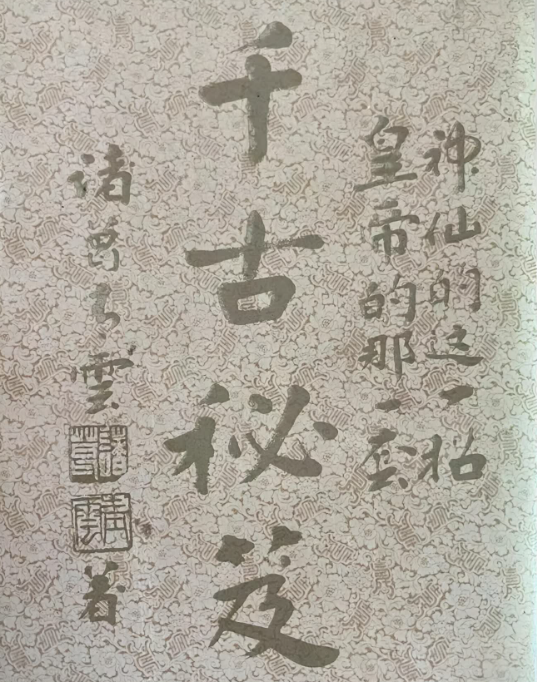 神仙的这一招
皇帝的那一套
千古秘笈
诸葛青雲 著